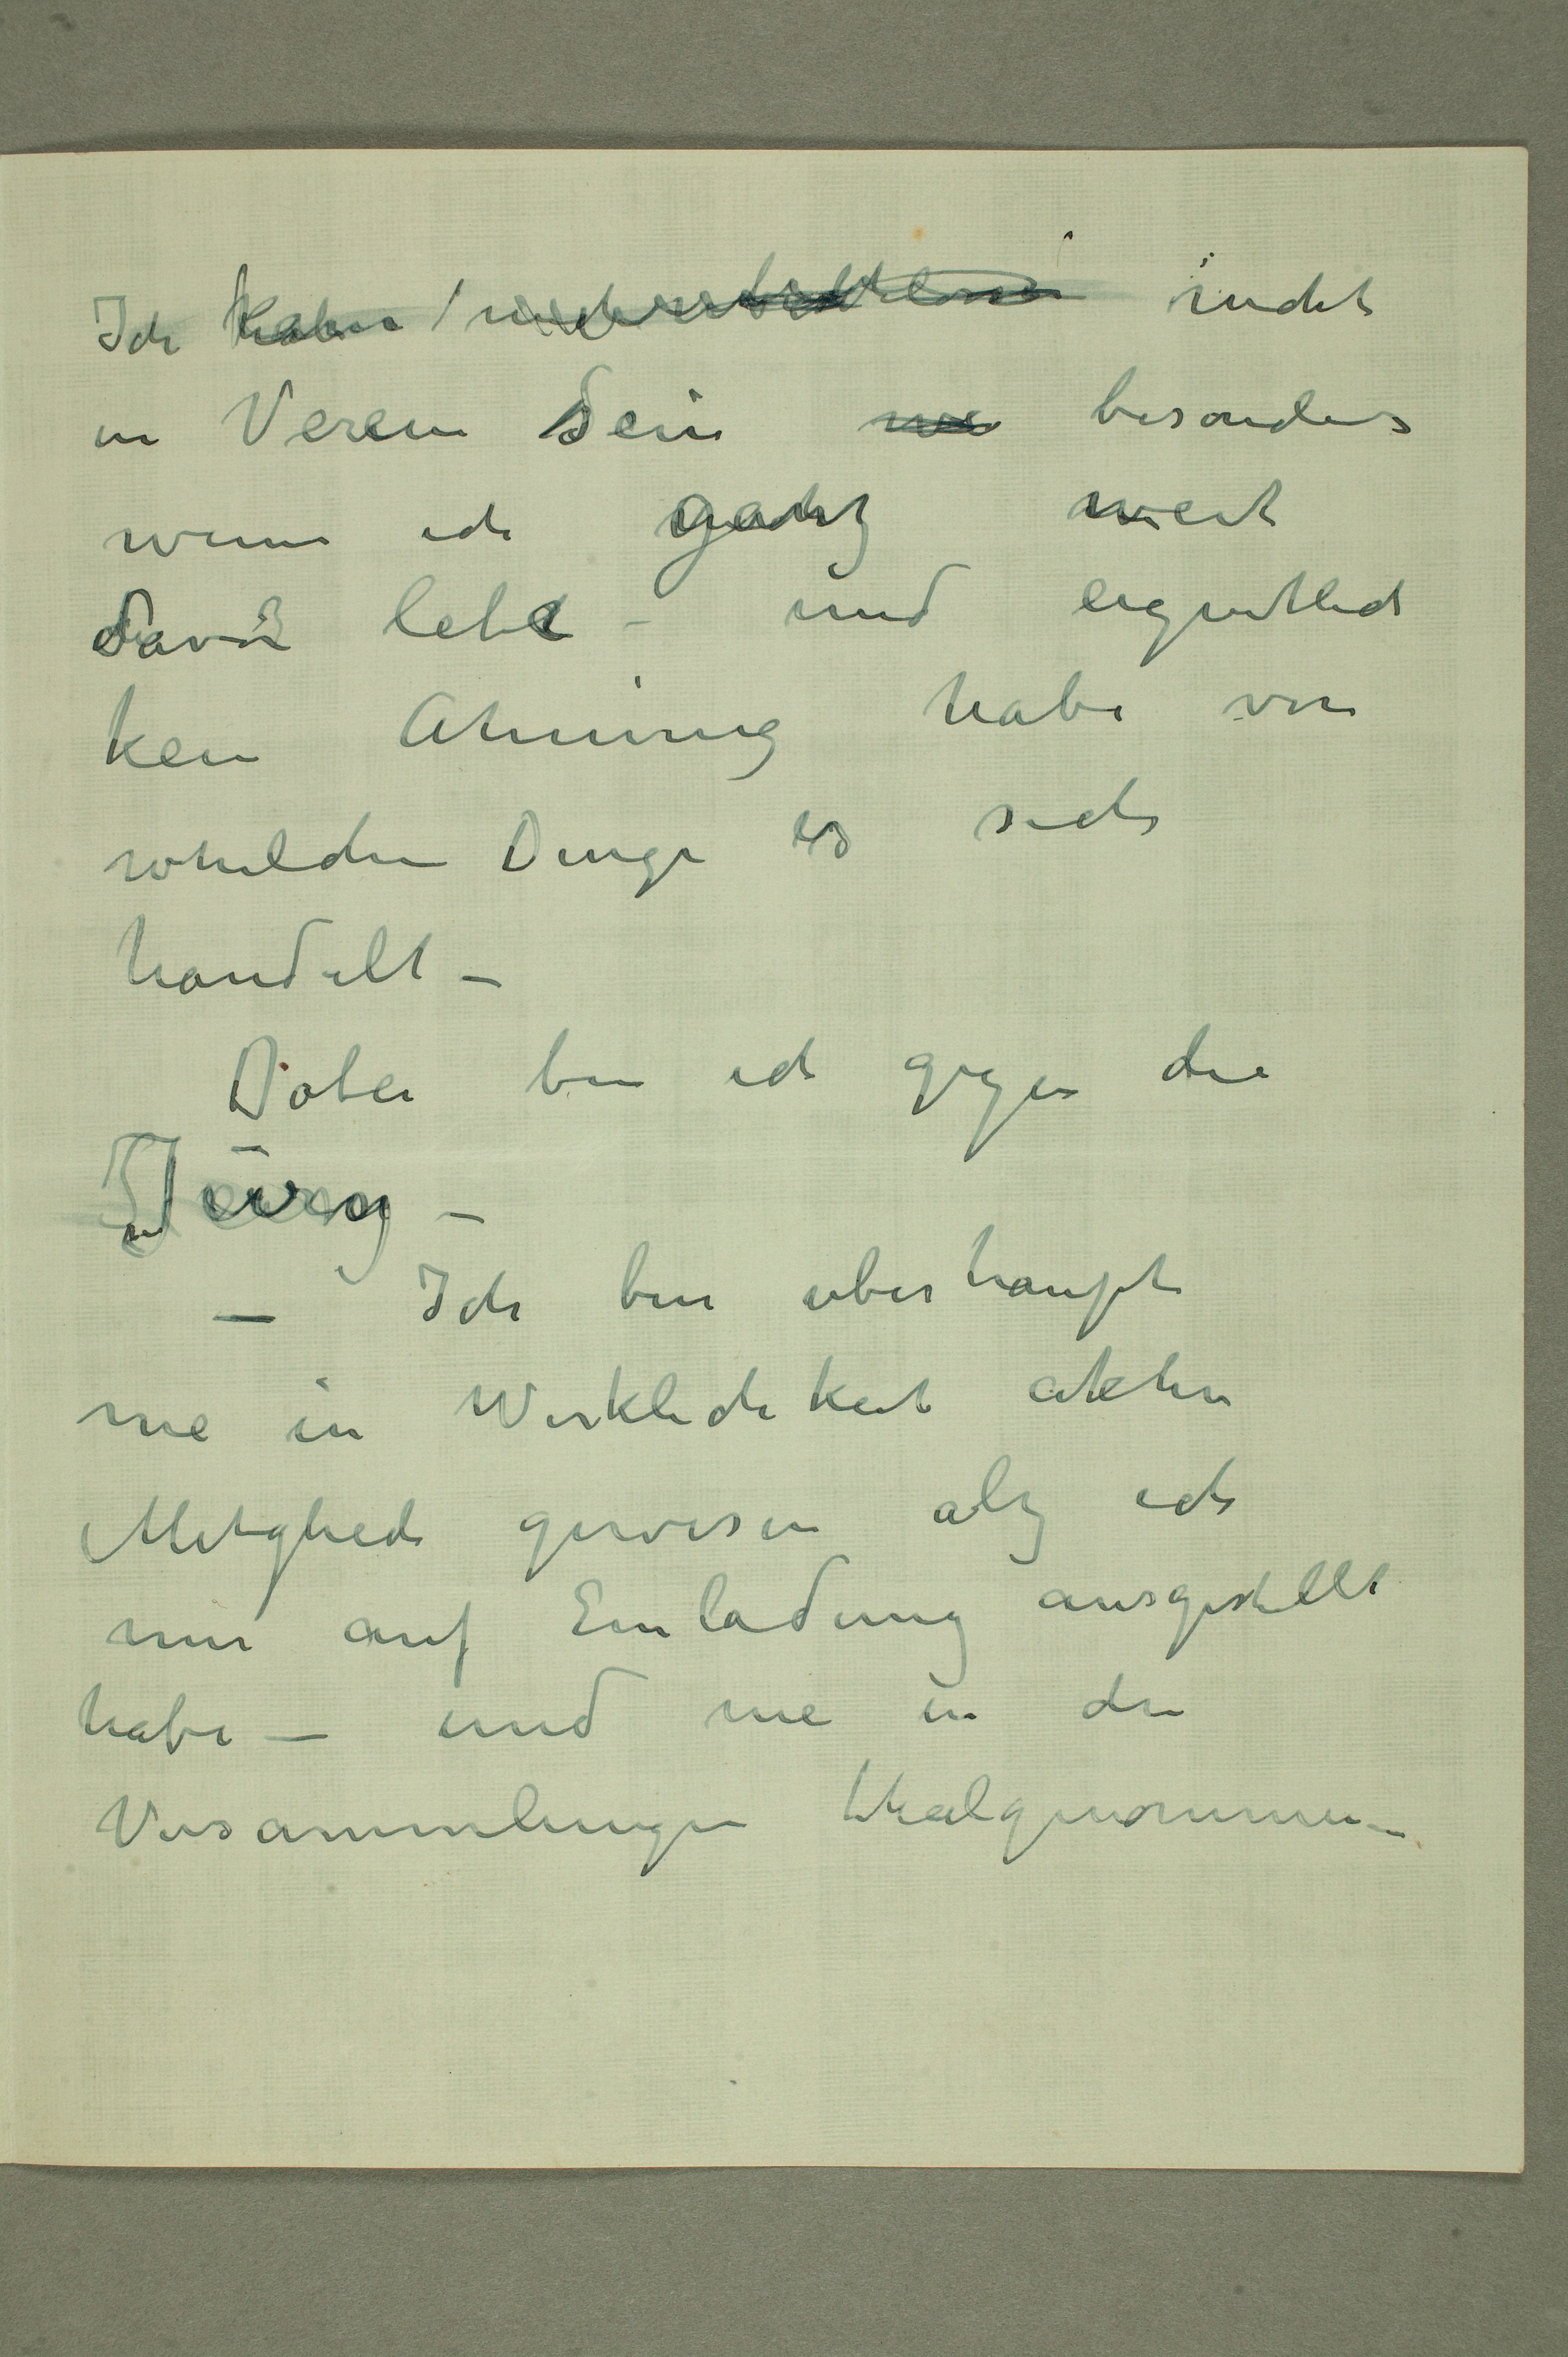 Ich kann nicht
in Verein sein besonders
wenn ich ganz weit
davon lebe – und eigentlich
kein Ahnung habe von
whelchen Dinge es sich
handelt –
Dabei bin ich gegen die
Jüry –
– Ich bin überhaupt
nie in Wirklichkeit aktein
Mitglied gewesen alz ich
nur auf Einladung ausgestellt
habe – und nie in den
Versammlungen theilgenommen